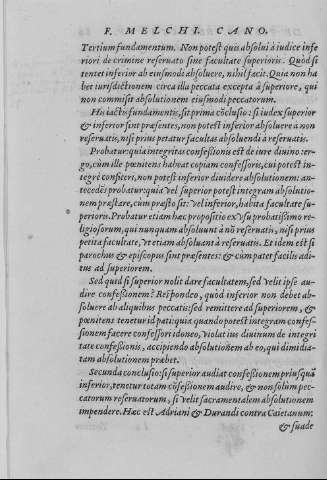 F. MELCHI. CANO.
Tertium fundamentum. Non potest quis absolui à iudice infe
riori de crimine reseruato sine facultate superioris. Quòd si
tentet inferior ab eiusmodi absoluere, nihil facit. Quia non ha
bet iurisdictionem circa illu peccata excepta à superiore, qui
non commisit absolutionem eiusmodi peccatorum.
His iactis fundamentis, sit prima cōclusio: si iudex superior
& inferior sint præsentes, non potest inferior absoluere à non
reseruatis, nisi prius petatur facultas absoluendi à reseruatis.
Probatur: quia integritas confeßionis est de iure diuino. ter-
go, cùm ille pœnitens habeat copiam confessoris, cui potest in-
tegrè confiteri, non potest inferior diuidere absolutionem: an-
tecedēs probatur: quia vel superior potest integram absolutio-
nem præstare, cùm præsto sit: vel inferior, habita facultate su-
perioris. Probatur etiam hæc propositio ex vsu probatißimo re-
ligiosorum, qui nunquam absoluunt à nō reseruatis, nisi prius
petita facultate, vt etiam absoluant à reseruatis. Et idem est si
parochus & episcopus sint præsentes: & cùm patet facilis adi-
tus ad superiorem.
Sed quid si superior nolit dare facultatem, sed velit ipse au-
dire confeßionem? Respondeo, quòd inferior non debet ab-
soluere ab aliquibus peccatis: sed remittere ad superiorem, &
pœnitens tenetur id pati: quia quando potest integram confes-
sionem facere confessori idoneo, violat ius diuinum de integri
tate confeßionis, accipiendo absolutionē ab eo, qui dimidia-
tam absolutionem præbet.
Secunda conclusio: si superior audiat confeßionem priusquā
inferior, tenetur totam cōfeßionem audire, & non solùm pec-
catorum reseruatorum, si velit sacramentalem absolutionem
impendere. Hæc est Adriani & Durandi contra Caietanum:
& suade